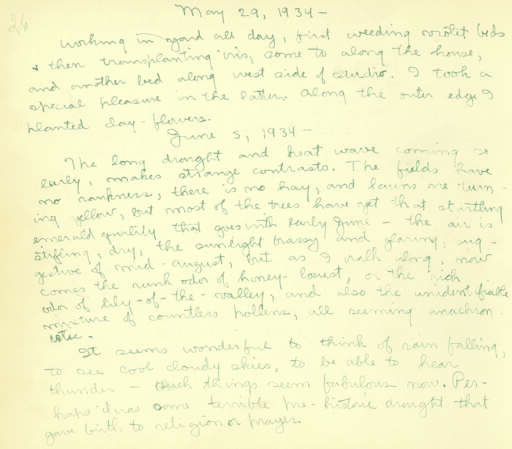 26
May 29, 1934 -
Working in yard all day, first weeding violet beds
& then transplanting iris, some to along the house,
and another bed along west side of studio. I took a
special pleasure in the latter. Along the outer edge I
planted day-flowers.
June 5, 1934 -
The long drought and heat wave coming so
early, makes strange contrasts. The fields have
no rankness, there is no hay, and lawns are turn-
ing yellow, but most of the trees have yet that startling
emerald quality that goes with early June - the air is
stifling, dry, the sunlight brassy and glaring, sug-
gestive of mid-august, but as I walk along, now
comes the rank odor of honey-locust, or the rich
odor of lily-of-the-valley, and also the unidentifiable
mixture of countless pollens, all seeming anachron-
istic.
It seems wonderful to think of rain falling,
to see cool cloudy skies, to be able to hear
thunder - such things seem fabulous now. Per-
haps it was some terrible pre-historic drought that
gave birth to religion or prayer.